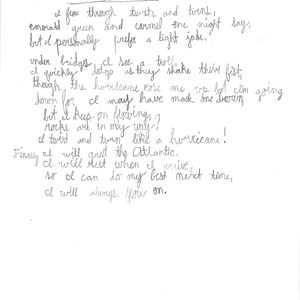 I flow through twists and turns,
emerald green and caramel one might say,
but I personally prefer a light jade.
under bridges, I see a troll,
I quickly dodge as they shake their fist,
though, the hurricane rose me up but I'm going
down for I may have made me
but I keep on flowing,
rocks are in my way.
I twist and turn like a hurricane!
Finaly I will greet the Atlantic.
I will rest when I arive,
so I can do my best next time,
I will always flow on.